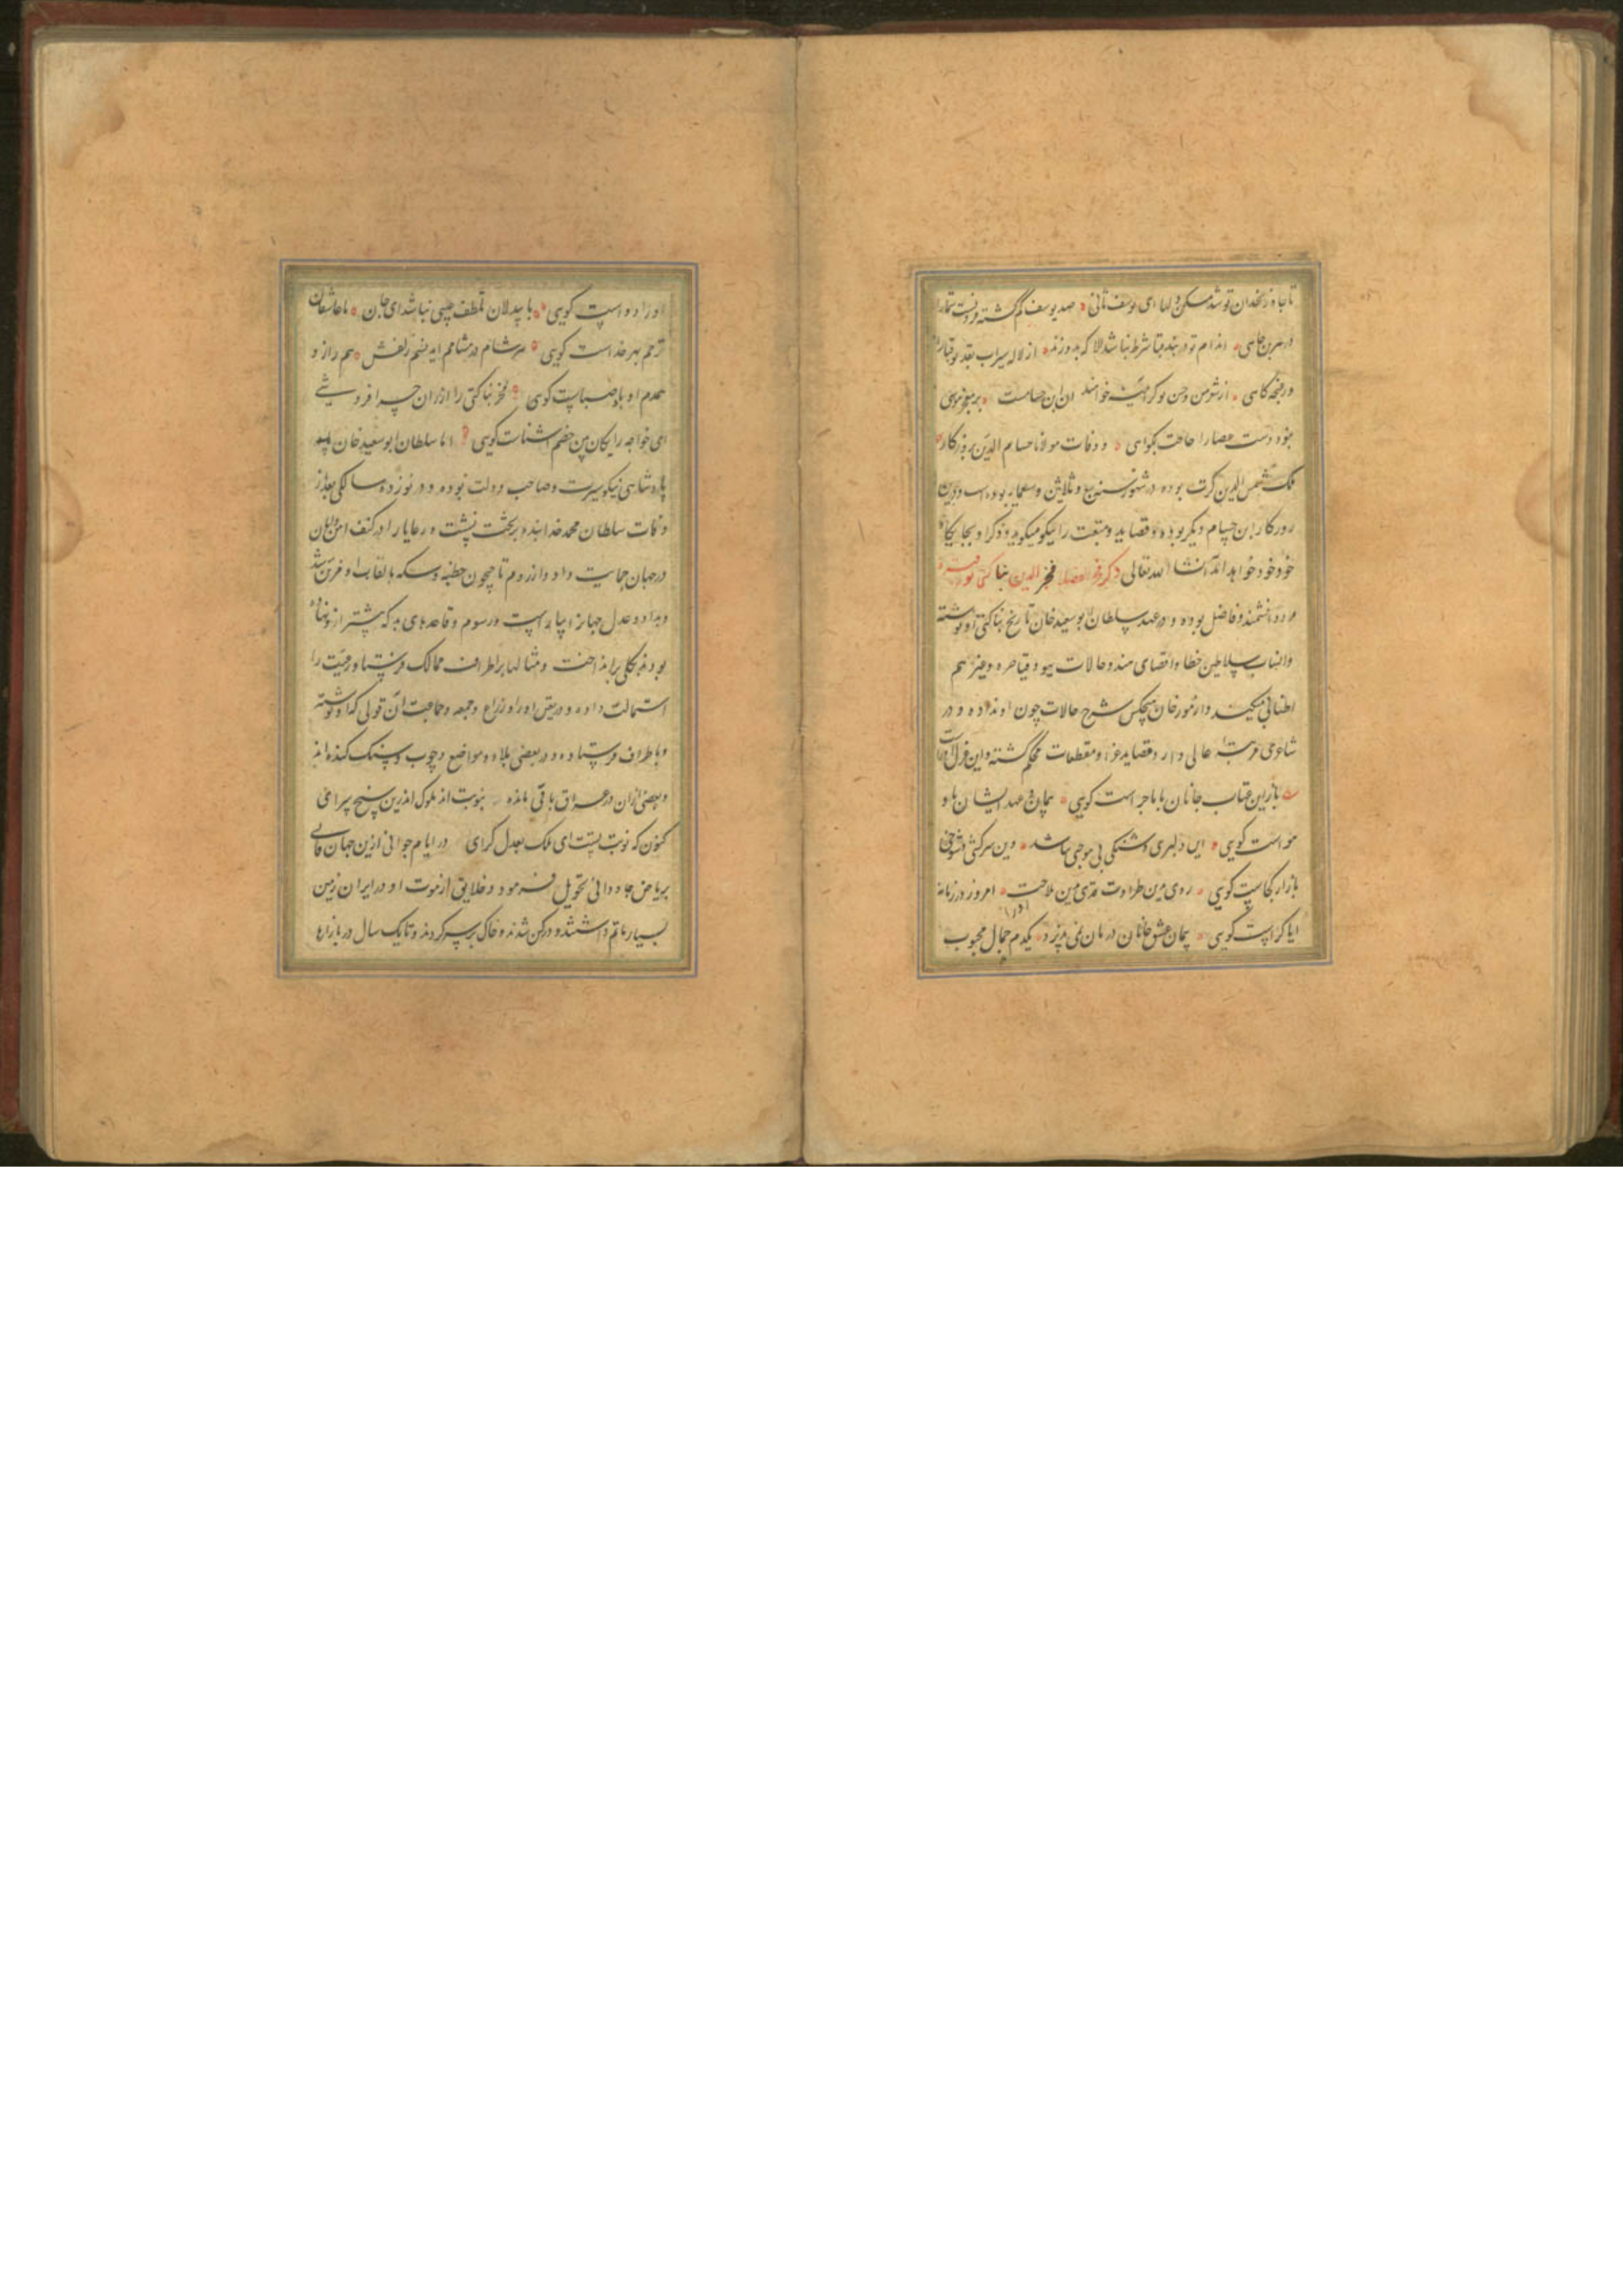 تا چاه زنخدان تو شد مسکن دلها ای یوسف ثانی صد یوسف گم گشته فزونست ترا
در هر بن چاهی اندام تو در بند قبا شرط نباشد لالا که بدوزند از لاله سیراب بقد تو قبا
در غنچه کلاهی
نمود دست عصا را حاجت بگواهی و وفات مولانا حسام الدین بروزگار
ملک شمس الدین کرت بوده در شهور سنه سبع و ثلاثین و سبعمایه بوده است و درین
روزگار این حسام دیگر بوده و قصاید و منقبت را نیکو میگوید و ذکر او بجایگاه
خود خواهد آمد انشا الله تعالی ذکر فخر الفضلا فخر الدین بناکتی نوره
مرد دانشمند و فاضل بوده و در عهد سلطان ابو سعید خان تاریخ بناکتی او نوشته
و انساب سلاطین خطا و اقصای هند و حالات یهود و قیاصره و غیر هم
اطنابی میکند و از مورخان هیچکس شرح حالات چون او نداده و در
شاعری مرتبه عالی دارد و قصاید غرا و مقطعات محکم گفته و این غزل او راست
باز این عتاب جانان با ما چراست گویی پیمان و عهد ایشان باد
هواست گویی این دلبری و شنگی بی موجبی نباشد وین سرکشی و شوخی
بازار کجاست گویی روی بدین طراوت قدی بدین ملاحت امروز در زمانه
آیا کراست گویی پیمان عشق جانان درمان نمی پذیرد یکدم جمال محبوب
او را دواست گویی با بیدلان تلطف عیبی نباشد ای جان با عاشقان
ترحم بهر خداست گویی هر شام در مشامم اید نسیم زلفش هم راز و
همدم او باد صباست گویی فخر بناکتی را ارزان چرا فروشی
ای خواجه رایگان بین خصم آشناست گویی اما سلطان ابو سعید خان
پادشاهی نیکو سیرت و صاحب دولت بوده و در نوزده سالگی بعد از
وفات سلطان محمد خدابنده بر تخت نشست و رعایا را در کنف امن و امان
در جهان حمایت داد و از روم تا جیحون خطبه و سکه بالقاب او مزین شد
و بداد و عدل جهانرا بیاراست و رسوم و قاعدهای بد که پیشتر ازو نهاده
بودند بکلی براند اخت و مثالها باطراف ممالک فرستاد و رعیت را
استمالت داده و در تعیین او را و زراع و جمعه و جماعت آن قولی که او نوشته
و باطراف فرستاده و در بعضی بلاد و مواضع در چوب و سنگ کنده اند
و بعضی ازان در عراق باقی مانده بنوبت اند ملوک اندرین سپنج سرای
کنون که نوبت تست ای ملک بعدل گرای در ایام جوانی ازین جهان فانی
بریاض جاودانی تحویل فرمود و خلایق از موت او در ایران زمین
بسیار ماتم داشتند و درکن شدند و خاک بر سر کردند و تا یک سال در بازارها